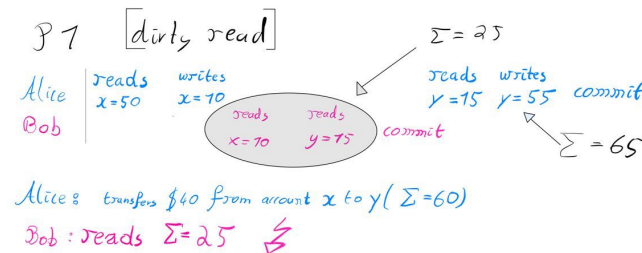 P1 [dirty read]
Σ=25
Alice reads writes reads writes
x=50 x=10 y=15 y=55 commit
Bob reads reads
x=10 y=15 commit
Σ=65
Alice: transfers $40 from account x to y (Σ=60)
Bob: reads Σ=25